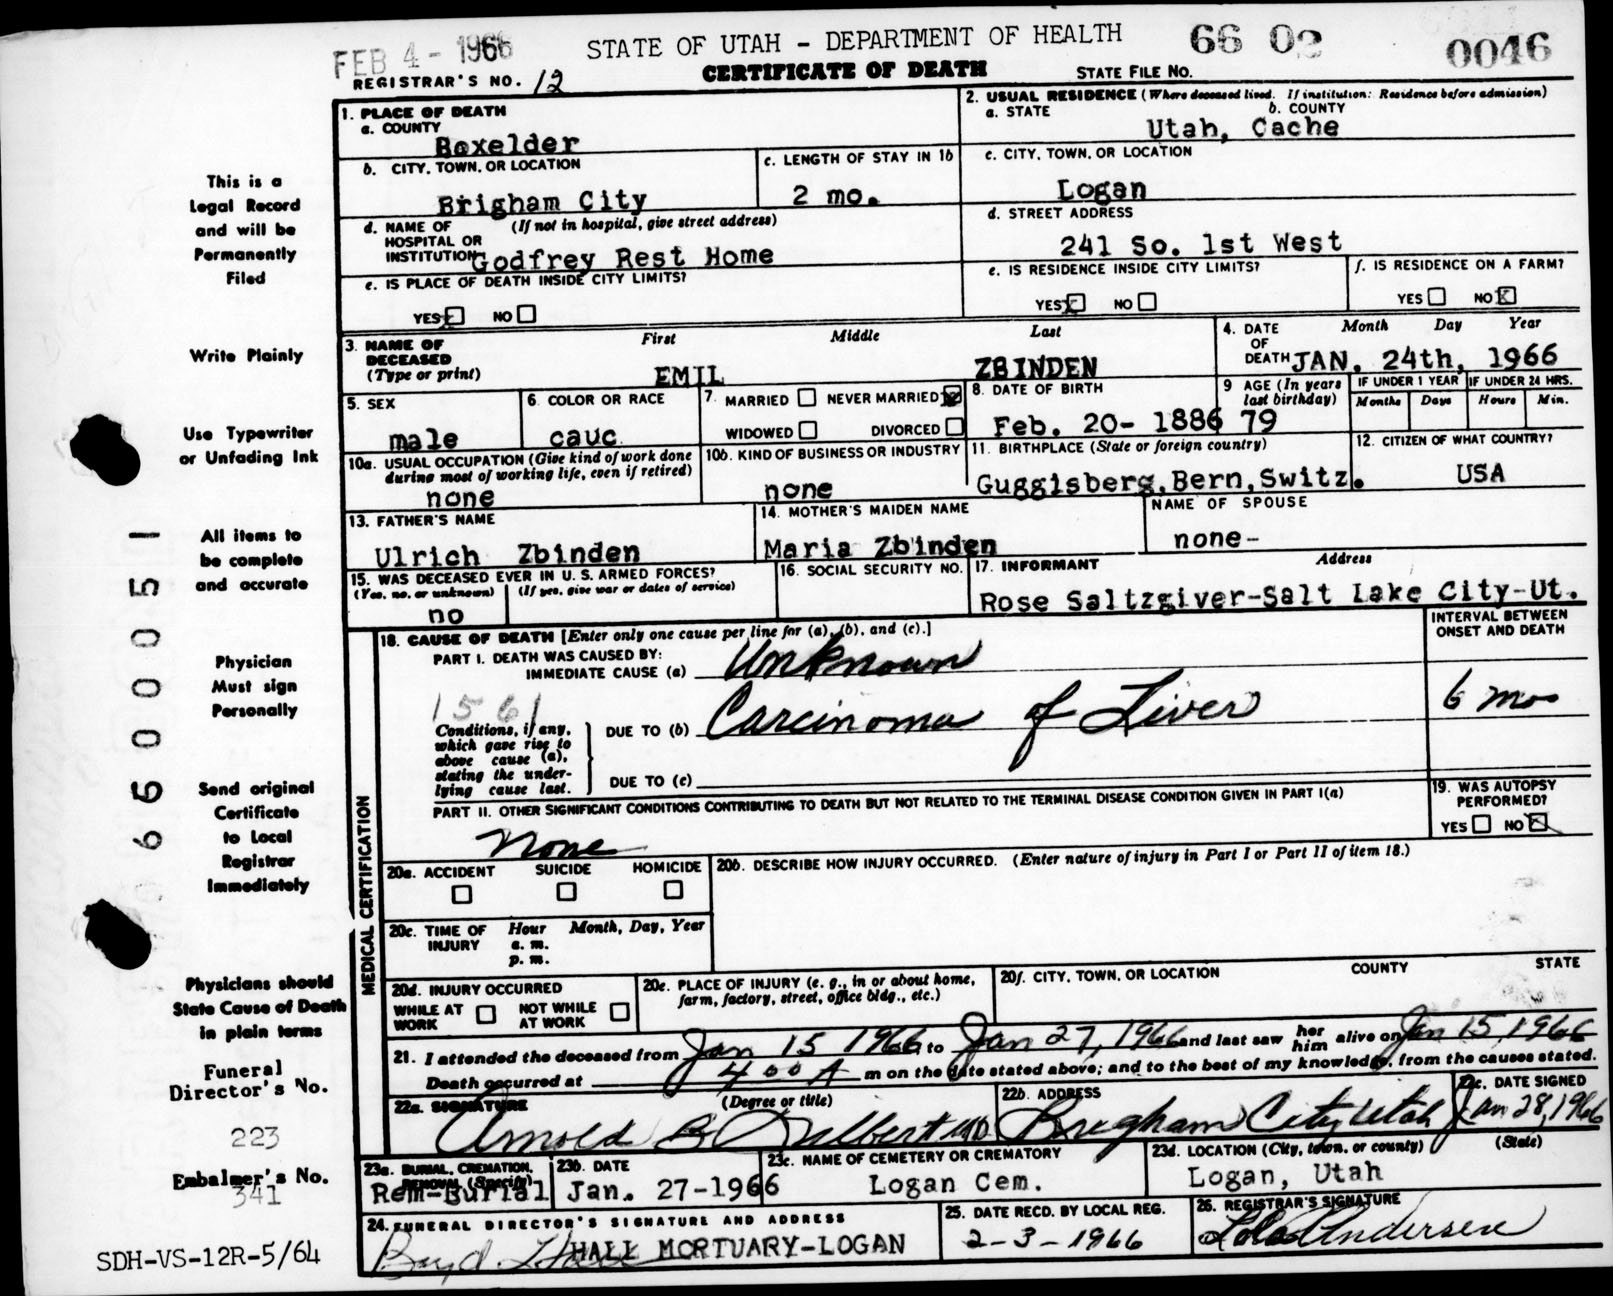 FEB 4 - 1966
STATE OF UTAH - DEPARTMENT OF HEALTH
66 02
0046
REGISTRAR'S NO. 12
CERTIFICATE OF DEATH
STATE FILE NO.
1. PLACE OF DEATH
a. COUNTY
Boxelder
2. USUAL RESIDENCE (Where deceased lived. If institution: Residence before admission)
a. STATE
b. COUNTY
Utah, Cache
b. CITY, TOWN, OR LOCATION
Brigham City
c. LENGTH OF STAY IN 1b
2 mo.
c. CITY, TOWN, OR LOCATION
Logan
d. NAME OF HOSPITAL OR INSTITUTION
(If not in hospital, give street address)
Godfrey Rest Home
d. STREET ADDRESS
241 So. 1st West
e. IS PLACE OF DEATH INSIDE CITY LIMITS?
YES x NO
e. IS RESIDENCE INSIDE CITY LIMITS?
YES x NO
f. IS RESIDENCE ON A FARM?
YES NO x
3. NAME OF DECEASED
(Type or print)
First Middle Last
EMIL ZBINDEN
4. DATE OF DEATH
Month Day Year
JAN. 24th, 1966
5. SEX
male
6. COLOR OR RACE
cauc.
7. MARRIED NEVER MARRIED x
WIDOWED DIVORCED
8. DATE OF BIRTH
Feb. 20- 1886
9 AGE (In years last birthday)
79
IF UNDER 1 YEAR
Months Days
IF UNDER 24 HRS.
Hours Min.
10a. USUAL OCCUPATION (Give kind of work done during most of working life, even if retired)
none
10b. KIND OF BUSINESS OR INDUSTRY
none
11. BIRTHPLACE (State or foreign country)
Guggisberg, Bern, Switz.
12. CITIZEN OF WHAT COUNTRY?
USA
13. FATHER'S NAME
Ulrich Zbinden
14. MOTHER'S MAIDEN NAME
Maria Zbinden
NAME OF SPOUSE
none-
15. WAS DECEASED EVER IN U. S. ARMED FORCES?
(Yes, no, or unknown) (If yes, give war or dates of service)
no
16. SOCIAL SECURITY NO.
17. INFORMANT Address
Rose Saltzgiver-Salt Lake City-Ut.
MEDICAL CERTIFICATION
18. CAUSE OF DEATH [Enter only one cause per line for (a), (b), and (c).]
INTERVAL BETWEEN ONSET AND DEATH
PART I. DEATH WAS CAUSED BY:
IMMEDIATE CAUSE (a) Unknown
1561
Conditions, if any, which gave rise to above cause (a), stating the underlying cause last.
DUE TO (b) Carcinoma of Liver
6 mos
DUE TO (c)
PART II. OTHER SIGNIFICANT CONDITIONS CONTRIBUTING TO DEATH BUT NOT RELATED TO THE TERMINAL DISEASE CONDITION GIVEN IN PART I(a)
None
19. WAS AUTOPSY PERFORMED?
YES NO x
20a. ACCIDENT SUICIDE HOMICIDE
20b. DESCRIBE HOW INJURY OCCURRED. (Enter nature of injury in Part I or Part II of item 18.)
20c. TIME OF INJURY
Hour Month, Day, Year
a. m.
p. m.
20d. INJURY OCCURRED
WHILE AT WORK NOT WHILE AT WORK
20e. PLACE OF INJURY (e. g., in or about home, farm, factory, street, office bldg., etc.)
20f. CITY, TOWN, OR LOCATION COUNTY STATE
21. I attended the deceased from Jan 15 1966, to Jan 27, 1966 and last saw her him alive on Jan 15, 1966
Death occurred at 4 00 A m on the date stated above; and to the best of my knowledge, from the causes stated.
22a. SIGNATURE (Degree or title)
Arnold B Gilbert MD
22b. ADDRESS
Brigham City, Utah
22c. DATE SIGNED
Jan 28, 1966
23a. BURIAL, CREMATION, REMOVAL (Specify)
Rem-Burial
23b. DATE
Jan. 27-1966
23c. NAME OF CEMETERY OR CREMATORY
Logan Cem.
23d. LOCATION (City, town, or county) (State)
Logan, Utah
24. FUNERAL DIRECTOR'S SIGNATURE AND ADDRESS
Boyd Hall HALL MORTUARY-LOGAN
25. DATE RECD. BY LOCAL REG.
2-3-1966
26. REGISTRAR'S SIGNATURE
Lola Andersen
This is a
Legal Record
and will be
Permanently
Filed
Write Plainly
Use Typewriter
or Unfading Ink
All items to
be complete
and accurate
Physician
Must sign
Personally
Send original
Certificate
to Local
Registrar
Immediately
Physicians should
State Cause of Death
in plain terms
Funeral
Director's No.
223
Embalmer's No.
341
SDH-VS-12R-5/64
66000051